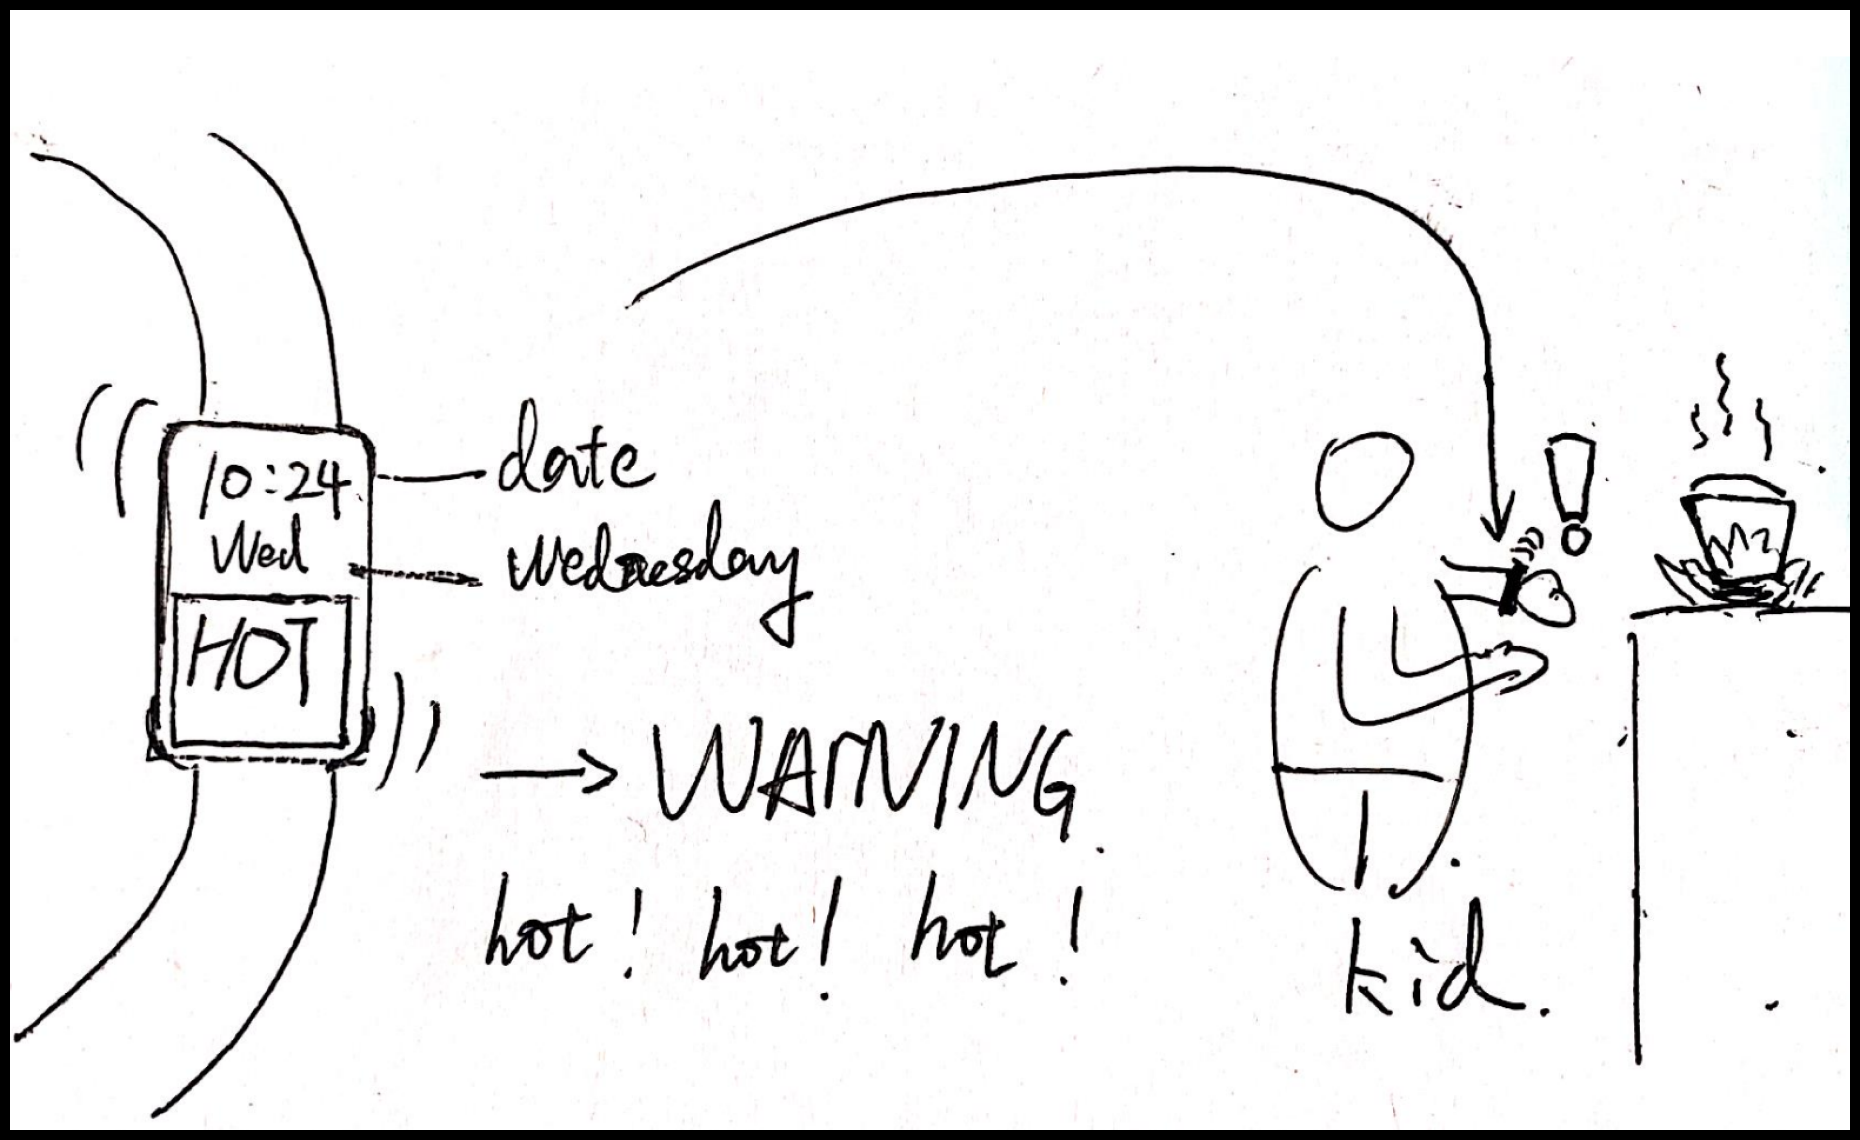 10:24
Wed
HOT
date
Wednesday
WARNING
hot! hot! hot!
kid.